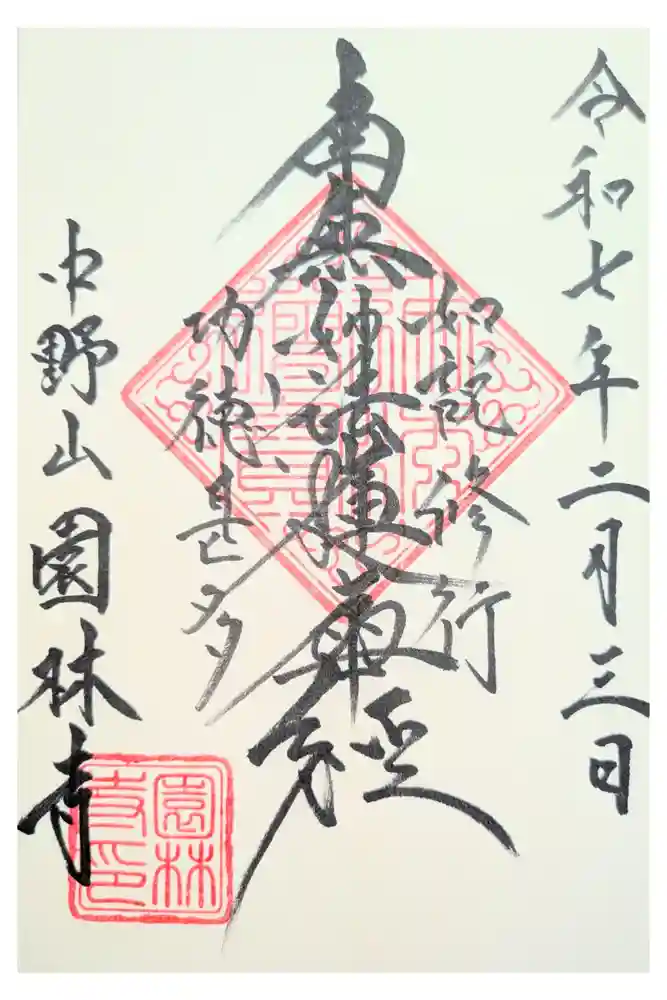 令和七年二月三日
如説修行
南無妙法蓮華経
功徳甚多
中野山 園林寺
園林
寺印